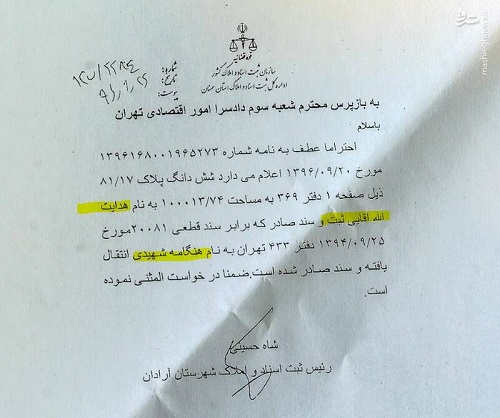 قوه قضائیه
سازمان ثبت اسناد و املاک کشور
اداره کل ثبت اسناد و املاک استان سمنان
شماره:
تاریخ:
پیوست:
به بازپرس محترم شعبه سوم دادسرا امور اقتصادی تهران
باسلام
احتراما عطف به نامه شماره ۱۳۹۶۱۶۸۰۰۱۹۶۵۲۷۳
مورخ ۱۳۹۶/۰۹/۲۰ اعلام می دارد شش دانگ پلاک ۸۱/۱۷
ذیل صفحه ۱ دفتر ۳۶۹ به مساحت ۱۰۰۰۱۳/۷۴ به نام هدایت
الله اقایی ثبت و سند صادر که برابر سند قطعی ۲۰۰۸۱مورخ
۱۳۹۴/۰۹/۲۵ دفتر ۴۳۳ تهران به نام هنگامه شهیدی انتقال
یافته و سند صادر شده است.ضمنا در خواست المثنی نموده
است.
شاه حسینی
رئیس ثبت اسناد و املاک شهرستان آرادان
mashreghnews.ir